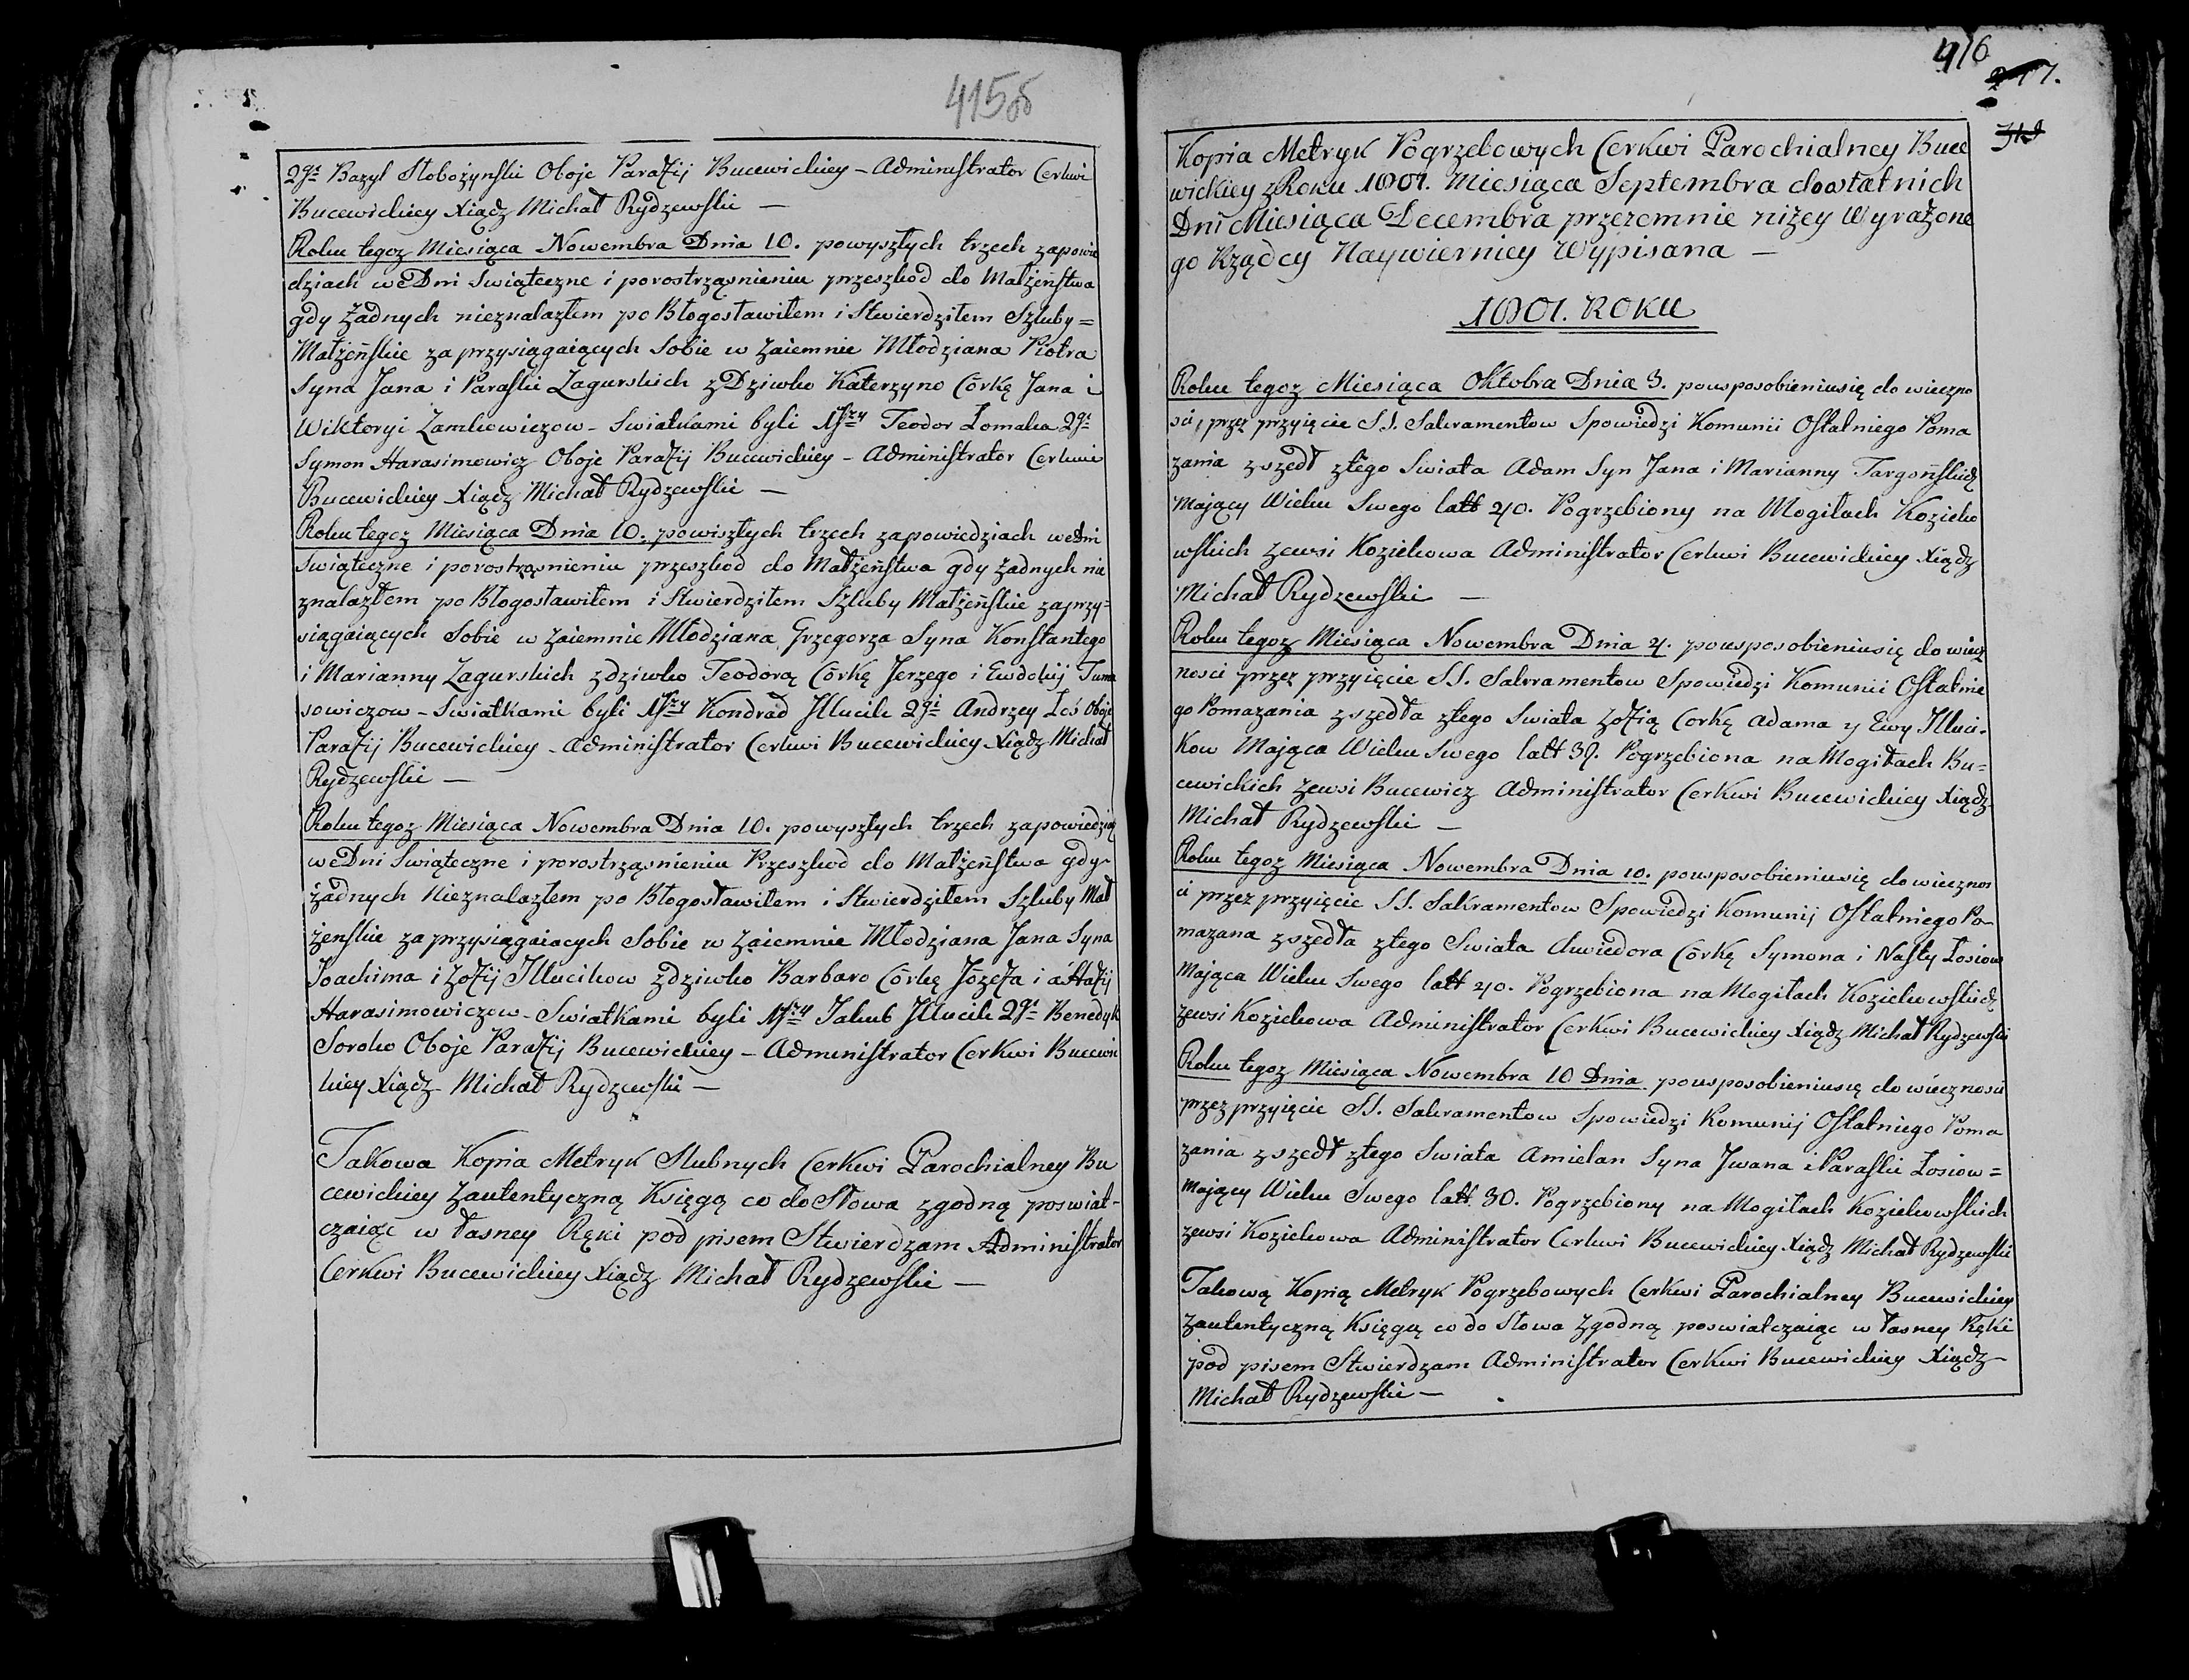 415об
2gi Bazyl Słobozynski Oboje Parafij Bucewickiey – Administrator Cerkwi
Bucewickiey Xiądz Michał Rydzewski —
Roku tegoz Miesiąca Nowembra Dnia 10. powyszłych trzech zapowie
dziach we Dni Swiąteczne i porostrząsnieniu przeszkod do Małżeństwa
gdy żadnych nieznalazłem po Błogosławiłem i Stwierdziłem Szluby =
Małżeńskie zaprzysiągaiących Sobie w zaiemnie Młodziana Piotra
Syna Jana i Paraski Zagurskich z Dziwko Katerzyno Córkę Jana i
Wiktoryi Zamkowiczow – Swiatkami byli 1szy Teodor Łomaka 2gi
Symon Harasimowicz Oboje Parafij Bucewickiey – Administrator Cerkwi
Bucewickiey Xiądz Michał Rydzewski —
Roku tegoz Miesiąca Dnia 10. powiszłych trzech zapowiedziach we dni
Swiąteczne i porostrząsnieniu przeszkod do Małżeństwa gdy żadnych nie
znalazłem po Błogosławiłem i Stwierdziłem Szluby Małżeńskie zaprzy=
siągaiących Sobie w zaiemnie Młodziana Grzegorza Syna Konstantego
i Marianny Zagurskich zdziwko Teodorą Córkę Jerzego i Ewdokij Tuma
sowiczow – Swiatkami byli 1szy Kondrad Illucik 2gi Andrzey Łoś Oboje
Parafij Bucewickiey – Administrator Cerkwi Bucewickiey Xiądz Michał
Rydzewski —
Roku tegoz Miesiąca Nowembra Dnia 10. powyszłych trzech zapowiedziach
we Dni Swiąteczne i porostrząsnieniu Przeszkod do Małżeństwa gdy
żadnych Nieznalazłem po Błogosławiłem i Stwierdziłem Szluby Mał
żenskie zaprzysiągaiacych Sobie w zaiemnie Młodziana Jana Syna
Joachima i Zofij Illucikow zdziwko Barbaro Córkę Józefa i aHafij
Harasimowiczow – Swiatkami byli 1szy Jakub Illucik 2gi Benedyk
Soroko Oboje Parafij Bucewickiey – Administrator Cerkwi Bucewic
kiey Xiądz Michał Rydzewski —
Takowa Kopia Metryk Slubnych Cerkwi Parochialney Bu
cewickiey Zautentyczną Księgą co do Słowa zgodną poswiat-
czaiąc w łasney Ręki pod pisem Stwierdzam Administrator
Cerkwi Bucewickiey Xiądz Michał Rydzewski —
416
217.
Kopia Metryk Pogrzebowych Cerkwi Parochialney Buce
wickiey z Roku 1801. Miesiąca Septembra doostatnich
Dni Miesiąca Decembra przezemnie niżey Wyrażone
go Rządcy Naywierniey Wypisana —
1801. ROKU
Roku tegoz Miesiąca Oktobra Dnia 3. pousposobieniusię do wieczno
sci, przez przyięcie S.S. Sakramentow Spowiedzi Komunii Ostatniego Poma
zania zszedł ztego Swiata Adam Syn Jana i Marianny Targońskich
Mający Wieku Swego latt 40. Pogrzebiony na Mogiłach Kozieko
wskich zewsi Koziekowa Administrator Cerkwi Bucewickiey Xiądz
Michał Rydzewski —
Roku tegoz Miesiąca Nowembra Dnia 4. pousposobieniusię do wiecz
nosci przez przyięcie S.S. Sakramentow Spowiedzi Komunii Ostatnie
go Pomazania zszedła ztego Swiata Zofią Corkę Adama y Ewy Illuci-
kow Mająca Wieku Swego latt 39. Pogrzebiona na Mogiłach Bu=
cewickich zewsi Bucewicz Administrator Cerkwi Bucewickiey Xiądz
Michał Rydzewski —
Roku tegoz Miesiąca Nowembra Dnia 10. pousposobieniusię do wiecznos
ci przez przyięcie S.S. Sakramentow Spowiedzi Komunij Ostatniego Po-
mazana zszedła ztego Swiata Chwiedora Córkę Symona i Nasty Łosiow
Mająca Wieku Swego latt 40. Pogrzebiona na Mogiłach Koziekowskich
zewsi Koziekowa Administrator Cerkwi Bucewickiey Xiądz Michał Rydzewski
Roku tegoz Miesiąca Nowembra 10 Dnia pousposobieniusię do wiecznosci
przez przyięcie S.S. Sakramentow Spowiedzi Komunij Ostatniego Poma
zania zszedł ztego Swiata Amielan Syna Jwana i Paraski Łosiow =
Mający Wieku Swego latt 30. Pogrzebiony na Mogiłach Koziekowskich
zewsi Koziekowa Administrator Cerkwi Bucewickiey Xiądz Michał Rydzewski
Takową Kopią Metryk Pogrzebowych Cerkwi Parochialney Bucewickiey
Zautentyczną Księgą co do Słowa Zgodną poswiatczaiąc w łasney Ręki
pod pisem Stwierdzam Administrator Cerkwi Bucewickiey Xiądz
Michał Rydzewski —